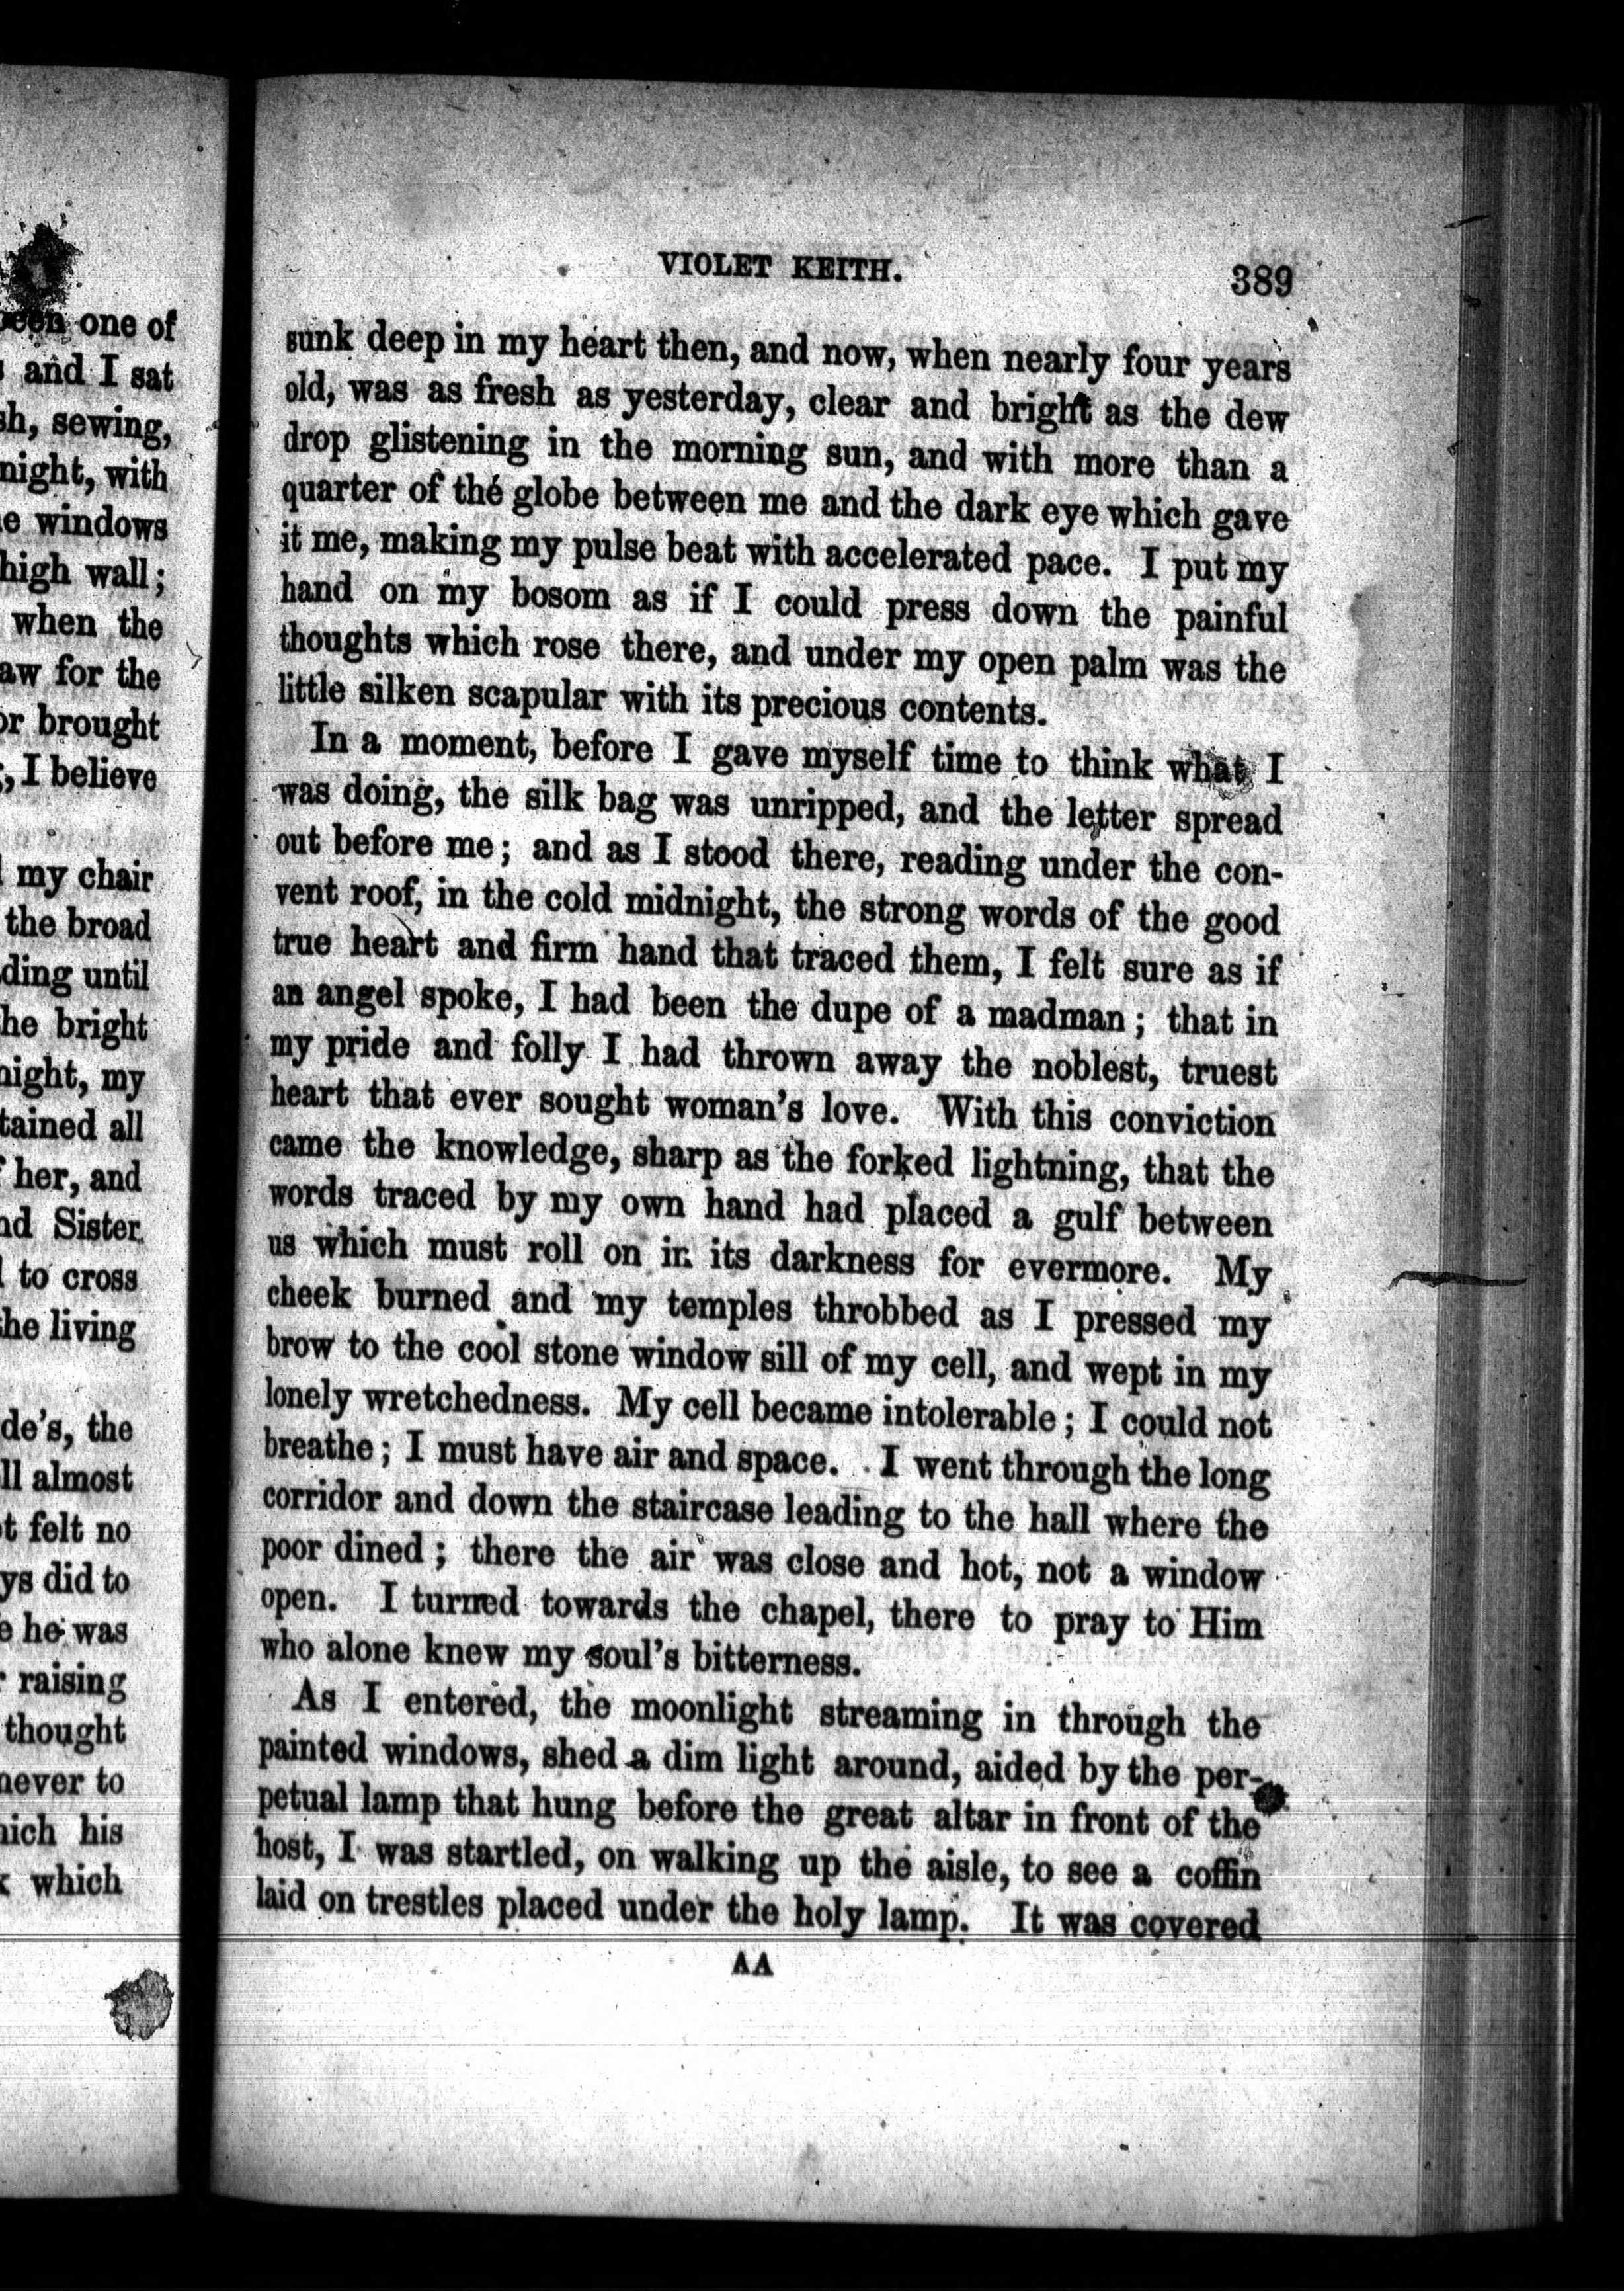 been one of
and I sat
sh, sewing,
night, with
e windows
high wall;
when the
aw for the
or brought
, I believe
my chair
the broad
ding until
he bright
night, my
tained all
her, and
nd Sister
to cross
he living
de's, the
ll almost
t felt no
ys did to
e he was
raising
thought
never to
hich his
which
VIOLET KEITH. 389
sunk deep in my heart then, and now, when nearly four years
old, was as fresh as yesterday, clear and bright as the dew
drop glistening in the morning sun, and with more than a
quarter of the globe between me and the dark eye which gave
it me, making my pulse beat with accelerated pace. I put my
hand on my bosom as if I could press down the painful
thoughts which rose there, and under my open palm was the
little silken scapular with its precious contents.
In a moment, before I gave myself time to think what I
was doing, the silk bag was unripped, and the letter spread
out before me; and as I stood there, reading under the con-
vent roof, in the cold midnight, the strong words of the good
true heart and firm hand that traced them, I felt sure as if
an angel spoke, I had been the dupe of a madman; that in
my pride and folly I had thrown away the noblest, truest
heart that ever sought woman's love. With this conviction
came the knowledge, sharp as the forked lightning, that the
words traced by my own hand had placed a gulf between
us which must roll on in its darkness for evermore. My
cheek burned and my temples throbbed as I pressed my
brow to the cool stone window sill of my cell, and wept in my
lonely wretchedness. My cell became intolerable; I could not
breathe; I must have air and space. I went through the long
corridor and down the staircase leading to the hall where the
poor dined; there the air was close and hot, not a window
open. I turned towards the chapel, there to pray to Him
who alone knew my soul's bitterness.
As I entered, the moonlight streaming in through the
painted windows, shed a dim light around, aided by the per-
petual lamp that hung before the great altar in front of the
host, I was startled, on walking up the aisle, to see a coffin
laid on trestles placed under the holy lamp. It was covered
AA